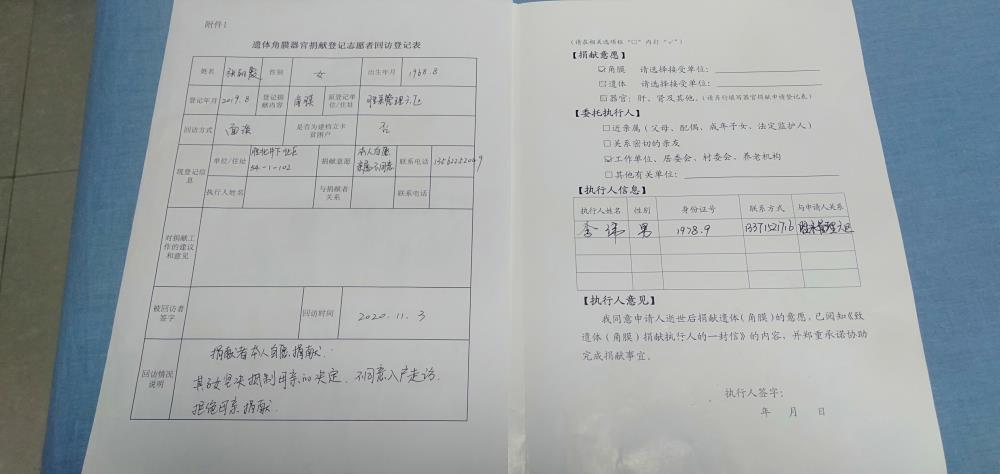 附件1
遗体角膜器官捐献登记志愿者回访登记表
姓名 性别 女 出生年月 1968.8
登记年月 2019.8 登记捐献内容 角膜 原登记单位/住址 胜采管理三区
回访方式 面谈 是否为建档立卡贫困户 否
现登记信息
单位/住址 54-1-102 捐献意愿 本人自愿 联系电话
执行人姓名 与捐献者关系 联系电话
对捐献工作的建议和意见
被回访者签字 回访时间 2020.11.3
回访情况说明
捐献者本人自愿捐献.
坚决抵制母亲的决定.不同意入户走访.
拒绝母亲捐献.
(请在相关选项框“□”内打“✓”)
【捐献意愿】
☑角膜 请选择接受单位:
□遗体 请选择接受单位:
□器官:肝、肾及其他。(请另行填写器官捐献申请登记表)
【委托执行人】
□近亲属(父母、配偶、成年子女、法定监护人)
□关系密切的亲友
☑工作单位、居委会、村委会、养老机构
□其他有关单位:
【执行人信息】
执行人姓名 性别 身份证号 联系方式 与申请人关系
李 男 1978.9 13371521716 胜采管理三区
【执行人意见】
我同意申请人逝世后捐献遗体(角膜)的意愿,已阅知《致
遗体(角膜)捐献执行人的一封信》的内容,并郑重承诺协助
完成捐献事宜。
执行人签字:
年 月 日